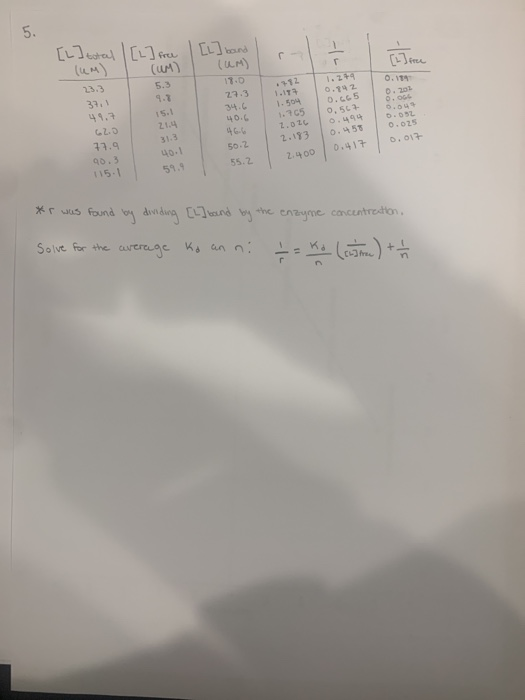 5.
[L] total (uM) | [L] free (uM) | [L] bound (uM) | r | 1/r | 1/[L] free
23.3 5.3 18.0 .782 1.279 0.189
37.1 9.8 27.3 1.187 0.842 0.202
49.7 15.1 34.6 1.504 0.665 0.066
62.0 21.4 40.6 1.765 0.567 0.047
77.9 31.3 46.6 2.026 0.494 0.032
90.3 40.1 50.2 2.183 0.458 0.025
115.1 59.9 55.2 2.400 0.417 0.017
*r was found by dividing [L]bound by the enzyme concentration.
Solve for the average Kd an n: 1/r = Kd/n (1/[L]free) + 1/n